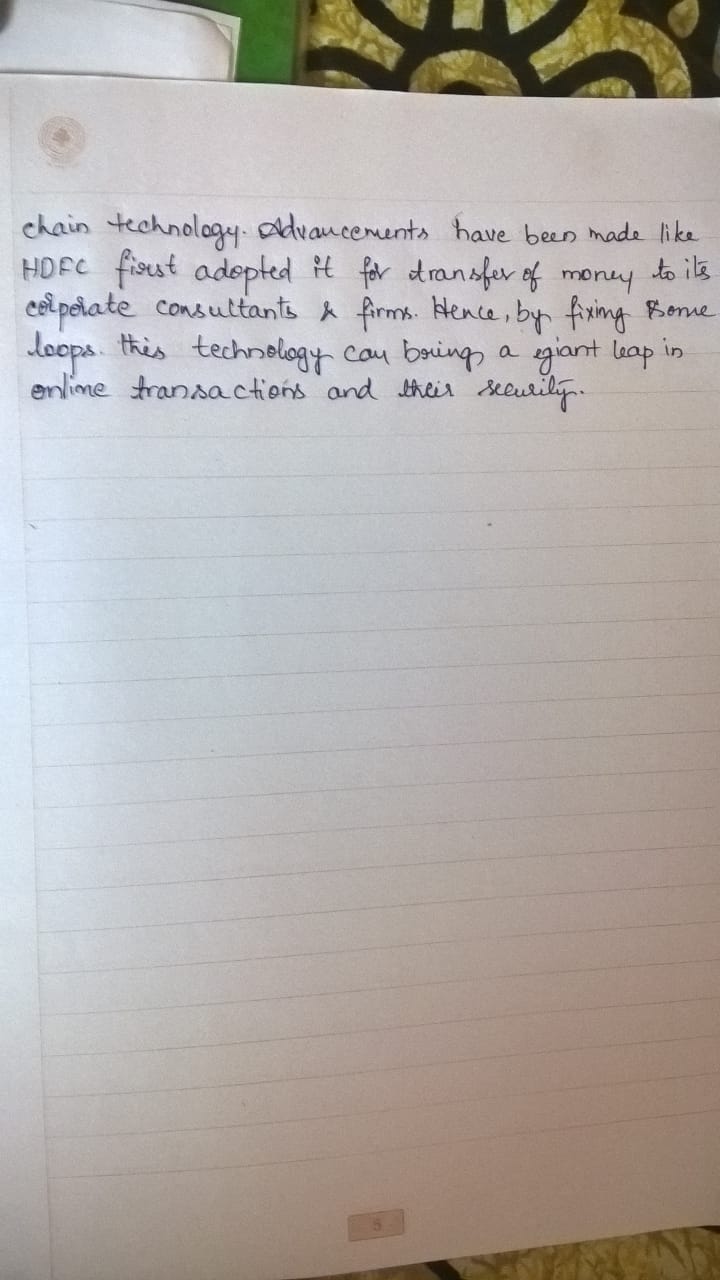 chain technology. Advancements have been made like
HDFC first adopted it for transfer of money to its
corporate consultants & firms. Hence, by fixing some
loops. this technology can bring a giant leap in
online transactions and their security.
5